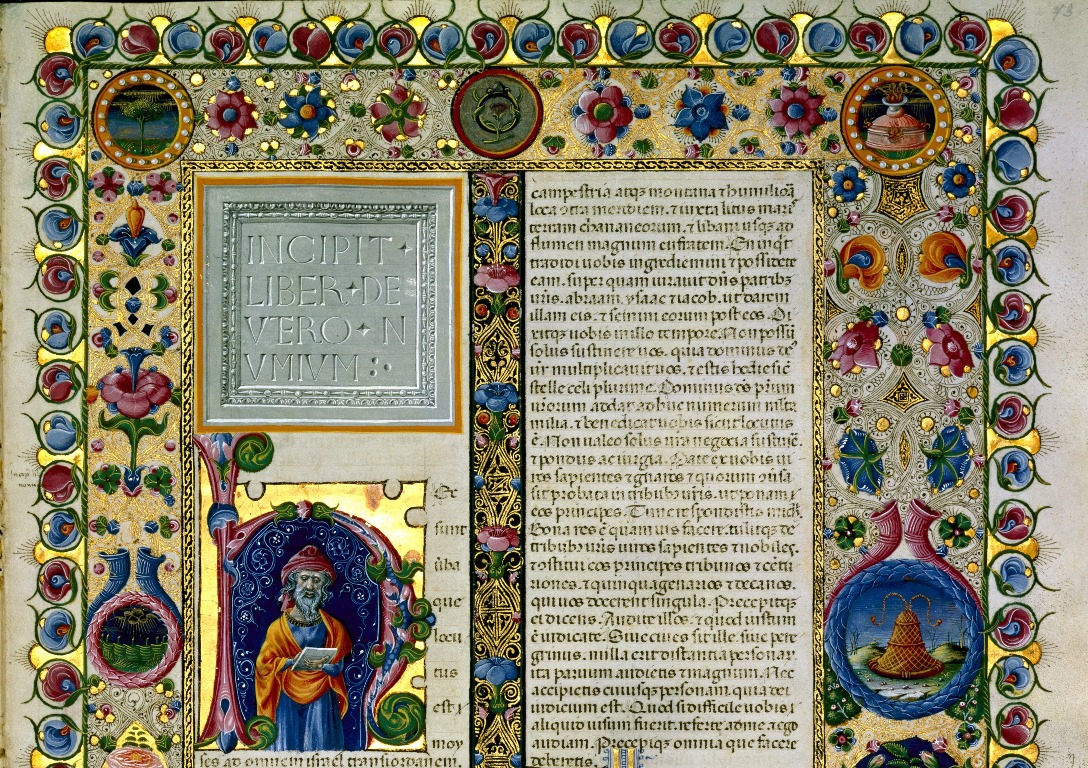 INCIPIT
LIBER DE
VTERO N
VMIVM
Ec
sunt
ůba
que
locu
tus
est
moy
ses ad omnem israel transiordanem.
campestria atqз montana et humiliora
loca contra meridiem. et iuxta litus maris
terram chananeorum. et libani usqз ad
flumen magnum eufratem. En inqt
tradidi uobis ingredimini et possidete
eam. super quam iurauit dns patribз
uris. abraam. ysaac et iacob. ut daret
illam eis. et semini eorum post eos. Di
xitqз uobis in illo tempore. Non possum
solus sustinere uos. quia dominus de
ur multiplicauit uos. et estis hodie sic
stelle celi plurime. Dominus
addat ad hunc numerum multa
milia. et benedicat uobis sicut locutus
e. Non ualeo solus ura negocia sustine.
et pondus ac iurgia. Date ex uobis ui
ros sapientes et gnaros et quorum
sit probata in tribubз uris. ut ponam
eos principes. Tunc respondistis michi
Bona res e quam uis facere. tuliqз de
tribubз uris uiros sapientes et nobiles.
et ostitui eos principes tribunos et ceti
riones. et quinquagenarios et decanos.
qui uos docerent singula. Precepiqз
ei dicens. Audite illos. et quod iustum
e iudicate. Siue ciuis sit ille. siue pere
grinus. nulla erit distantia personar
ita paruum audietis et magnum. Nec
accipietis cuiusqз personam. quia dei
iudicium est. Quod si difficile uobis
aliquid uisum fuerit. referte ad me. et ego
audiam. Precepiqз omnia que facere
deberetis.